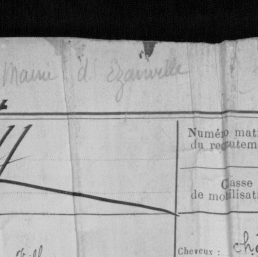 Mairie d'Ezanville
Numéro mat
du recrutem
Classe
de mobilisati
Cheveux : châ